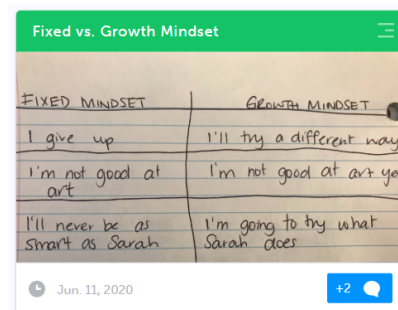 Fixed vs. Growth Mindset
FIXED MINDSET
GROWTH MINDSET
I give up
I'll try a different way
I'm not good at
art
I'm not good at art ye
I'll never be as
smart as Sarah
I'm going to try what
Sarah does
Jun. 11, 2020
+2